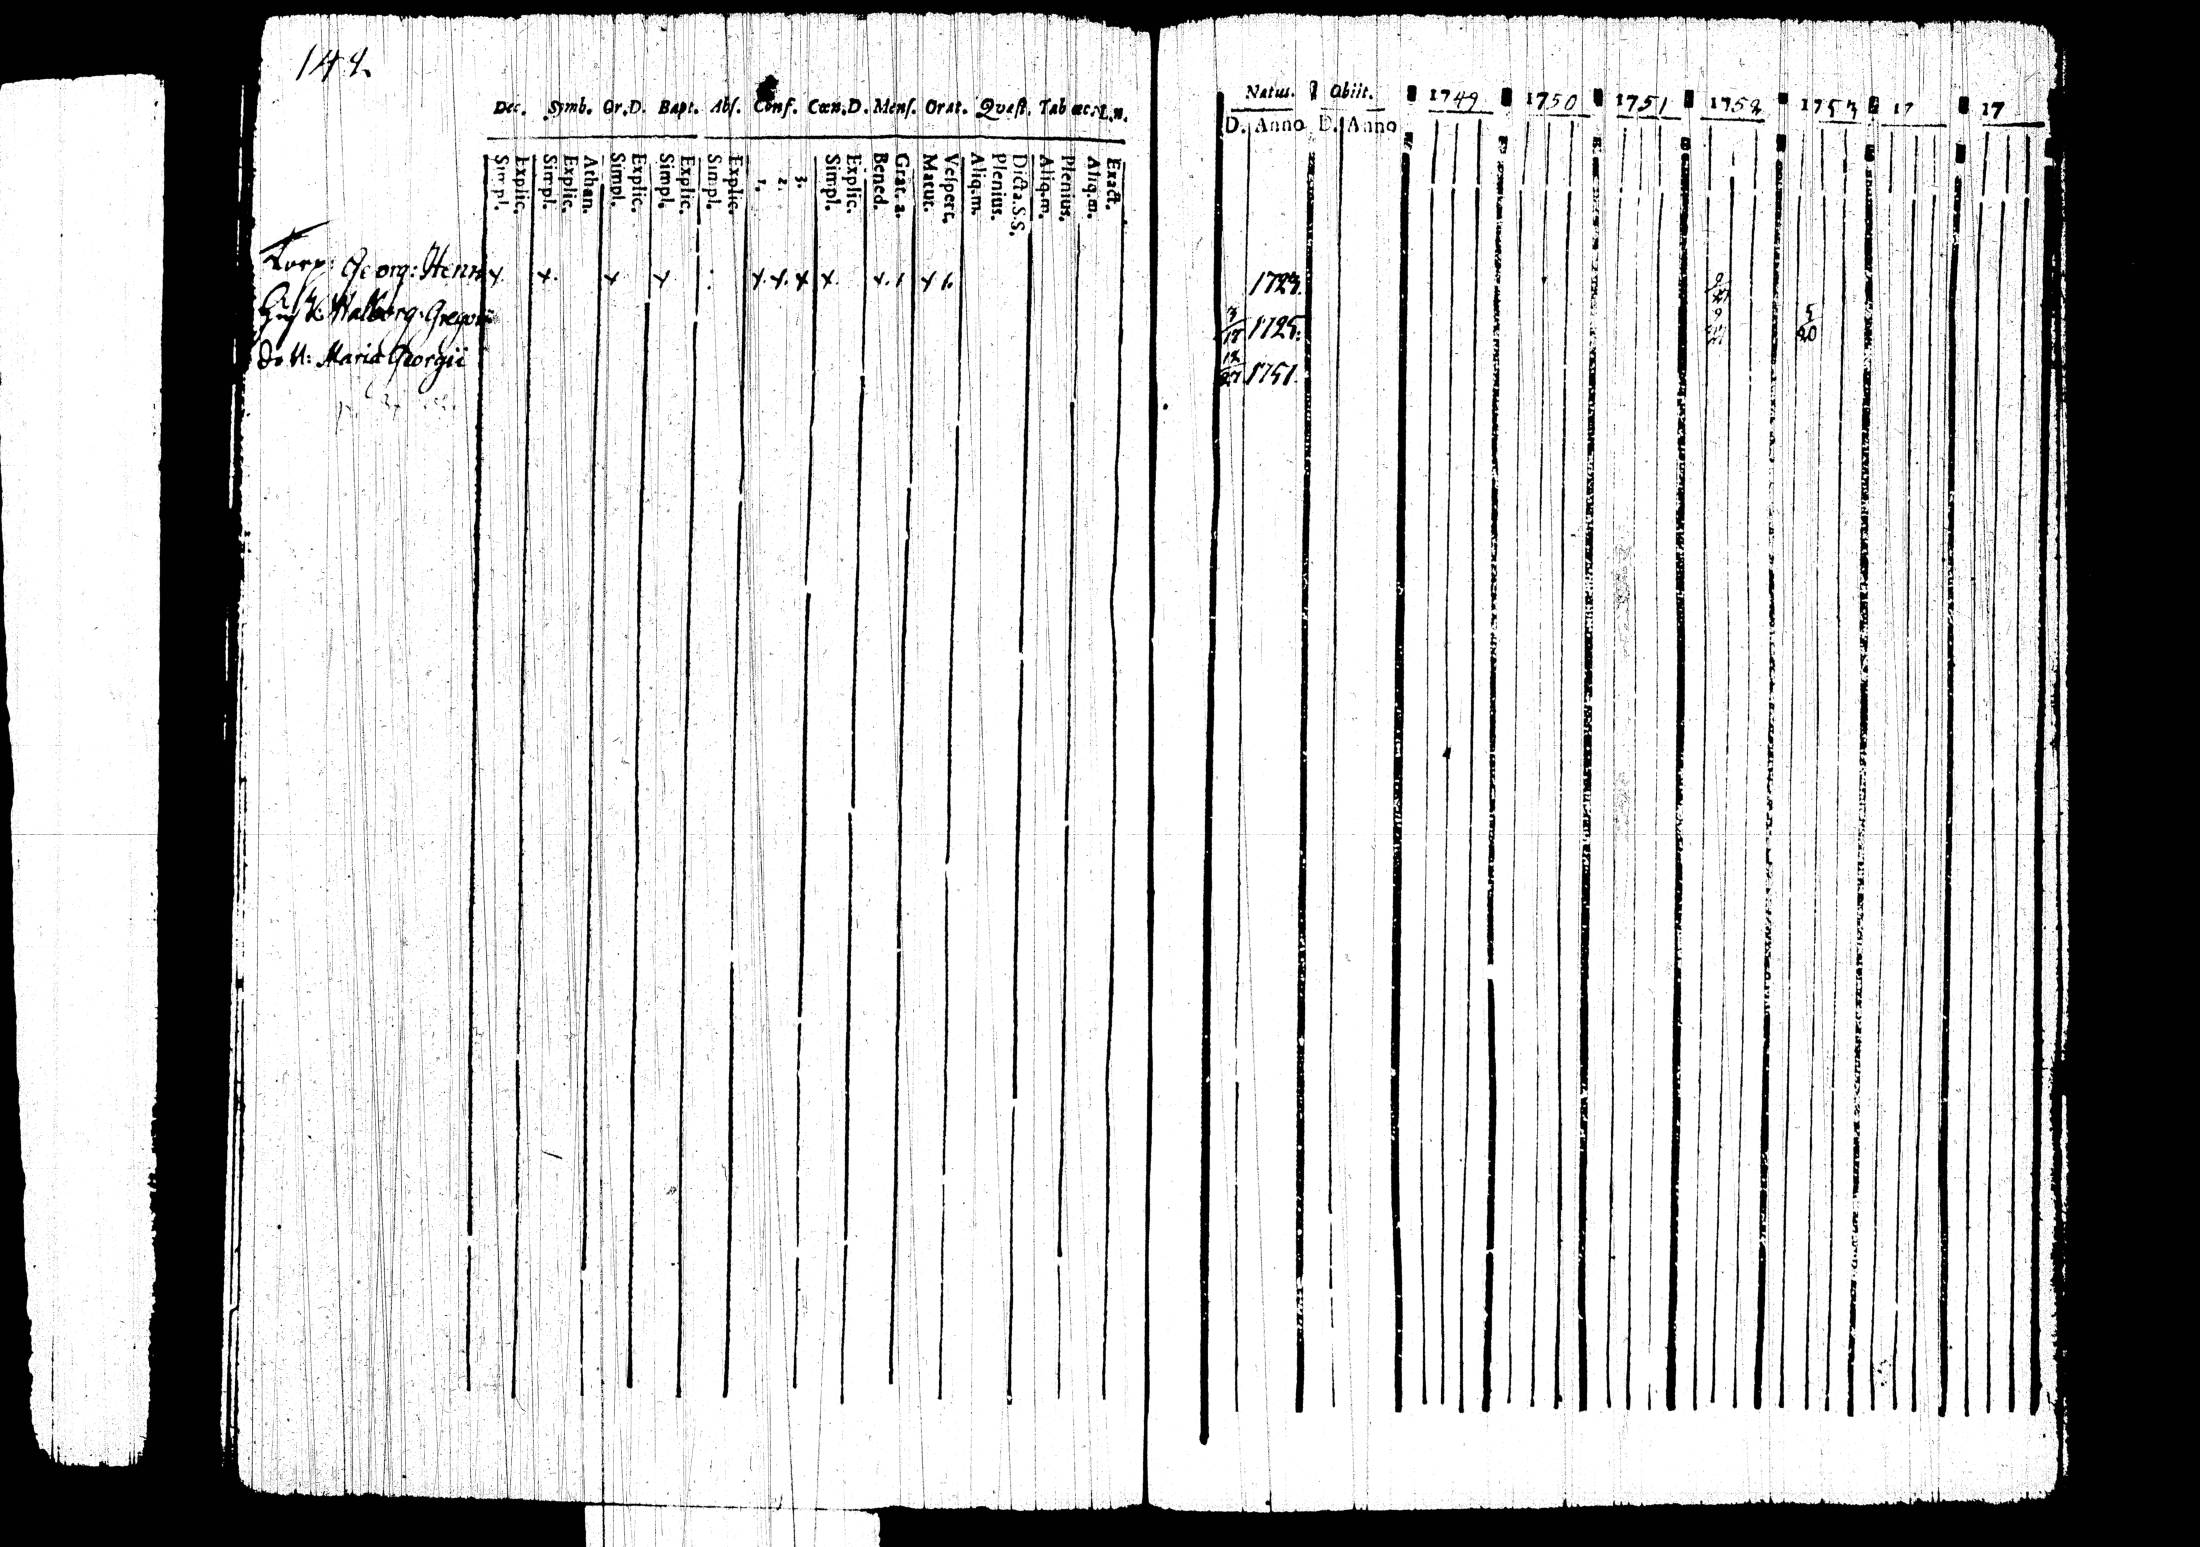 144.
Dec. Symb. Or.D. Bapt. Abs. Conf. Cœn.D. Mens. Orat. Quæst. Tab œc. L.n.
Simpl. Explic. Simpl. Explic. Athan. Simpl. Explic. Simpl. Explic. Simpl. Explic. 1. 2. 3. Simpl. Explic. Bened. Grat. a. Matut. Vespert. Aliq.m. Plenius. Dicta.S.S. Aliq.m. Plenius. Aliq.m. Exact.
Georg: Henr x x. x x : x. x. x x. x. 1 x 1.
H: Walborg. Gregori
do H: Maria Georgii
Natus. Obiit. 1749 1750 1751 1752 1753 17 17
D. Anno D. Anno
1723. 9/27
3/17 1725. 9/27 5/20
12/27 1751.